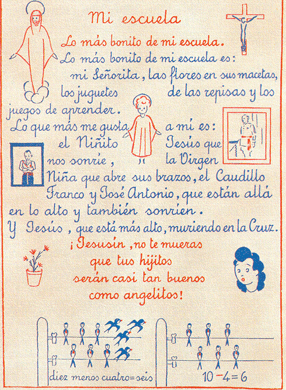 Mi escuela
Lo más bonito de mi escuela.
Lo más bonito de mi escuela es:
mi Señorita, las flores en sus macetas,
los juguetes de las repisas y los
juegos de aprender.
Lo que más me gusta a mí es:
el Niñito Jesús que
nos sonríe, la Virgen
Niña que abre sus brazos, el Caudillo
Franco y José Antonio, que están allá
en lo alto y también sonríen.
Y Jesús, que está más alto, muriendo en la Cruz.
¡Jesusín, no te mueras
que tus hijitos
serán casi tan buenos
como angelitos!
diez menos cuatro=seis
10-4=6